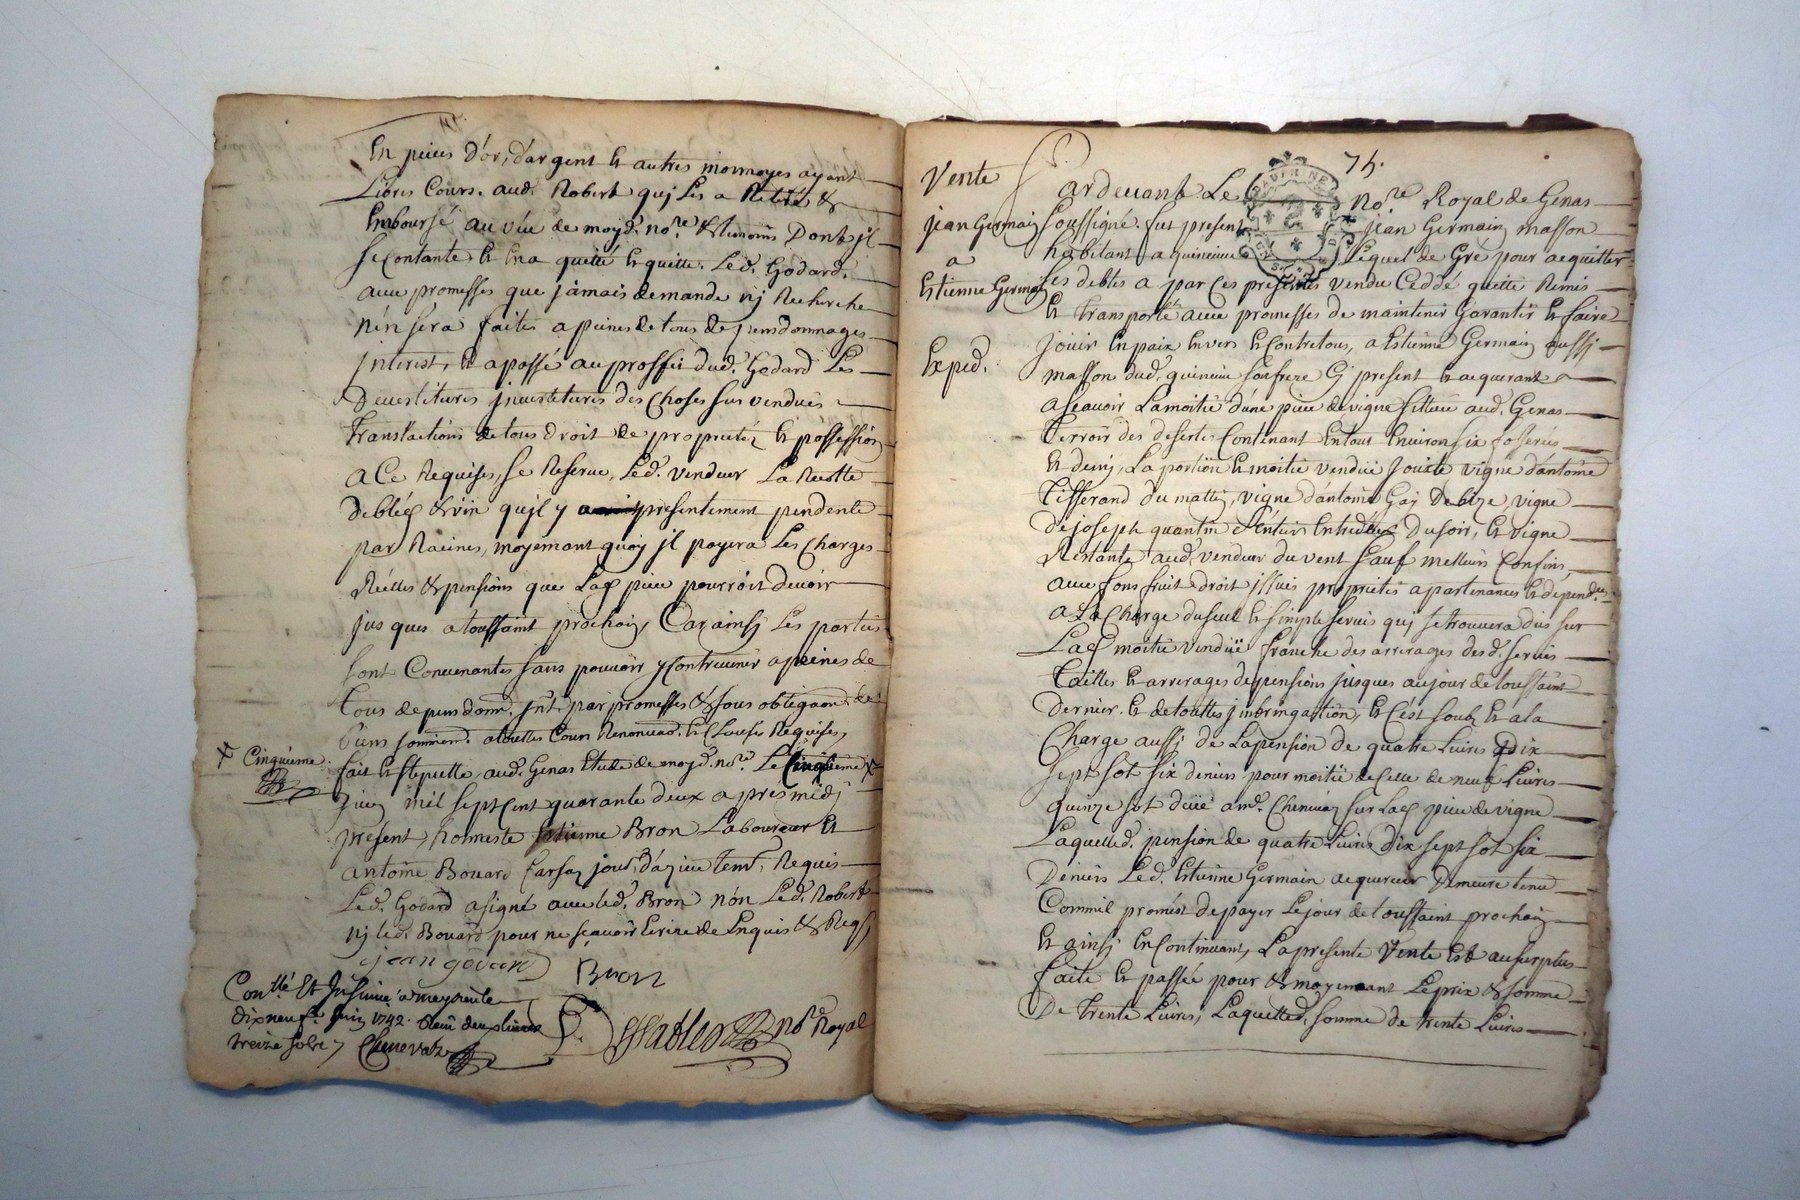 En pieces d'or, d'argent et autres monnoyes ayant
Libres Cours. aud. Robert quj Les a Retirés &
Emboursé au véu de moyd. no.re & temoins Dont jl
se contante et en a quitté et quitte. Led. Godard.
avec promesses que jamais demande nj Recherche
n'en sera faites a peines de tous depens dommages
jnterest, et a passé au proffit dud. Godard Les
Devestitures jnvestitures des choses sus vendues
Translactions de tous droit de proprietéz et possession
a Ce Requises, se Reserve, Led. vendeur La Recolte
de bleds & vin qujl y presentement pendente
par Racines, moyennant quoy jl payera Les Charges
Réelles & pensions que Lad. piece pourroit devoir
jusques a toussaint prochain, Car ainsj Les parties
sont Convenantes sans pouvoir y contrevenir a peines de
tous depens domm. jnt. par promesses & sous obligaon. de
biens a touttes Cours Renonciaon. et Clauses Requises,
fait et stipullé aud. Genas Etude de moyd. no.re. Le Cinquième X
X Cinquième.
juin mil sept cent quarante deux apres midj
présent, honneste Estienne Bron Laboureur et
antoine Bouard jour. d'azieu tem. Requis
Led. Godard a signé avec led. Bron non Led. Robert
nj led. Bouard pour ne sçavoir Ecrire de Enquis & Reqs
jean godard
Bron
no.re Royal
Con.llé Et Insinué a meyzieu le
dix neuf.e juin 1742. Reçu deux livres
treize sols
Chenevatz
74.
Vente
jean Germain
a
Estienne Germain
Exped.
Pardevant Le no.re Royal de Genas
soussigné. fut present jean Germain masson
habitant a quincieux Lequel de Gré pour acquitter
ses debtes a par ces présentes vendu Ceddé quitté Remis
et transporté avec promesses de maintenir Garantir et faire
jouir en paix envers et contre tous, a Estienne Germain aussj
masson dud. quincieu son frere Cj present et acquerant
a scavoir La moitié d'une piece de vigne sittuée aud. Genas
Terroir des desertes Contenant en tout environ six fosserées
et demy, La portion et moitié vendüe jouxte vigne d'antoine
Tisserand du matin, vigne d'antoine Gay De bize, vigne
de joseph quantin sentier entredeux du soir, et vigne
Restante aud. vendeur du vent sauf melleurs Confins,
avec fons fruit droit issues proprietés apartenances et dépend.ces
a La Charge du seul et simple servis quj se trouvera dus sur
Lad. moitié vendüe franche des arrerages desd. servis
tailles et arrerages de pensions jusques au jour de toussaint
dernier. et de touttes jnbringation, et C'est soubz et a la
Charge aussj de La pension de quatre Livres dix
sept sot six deniers pour moitié de Celle de neuf Livres
quinze sot düe a m.e Chenevaz sur Lad. piece de vigne
Laquelled. pension de quatre Livres Dix sept sot six
Deniers Led. Estienne Germain acquereur Demeure tenu
Comme il promest de payer Le jour de toussaint prochain
et ainsj en Continuant, La presente Vente est au surplus
faite et passée pour & moyennant Le prix & somme
De trente Livres, Laquelled. somme de trente Livres